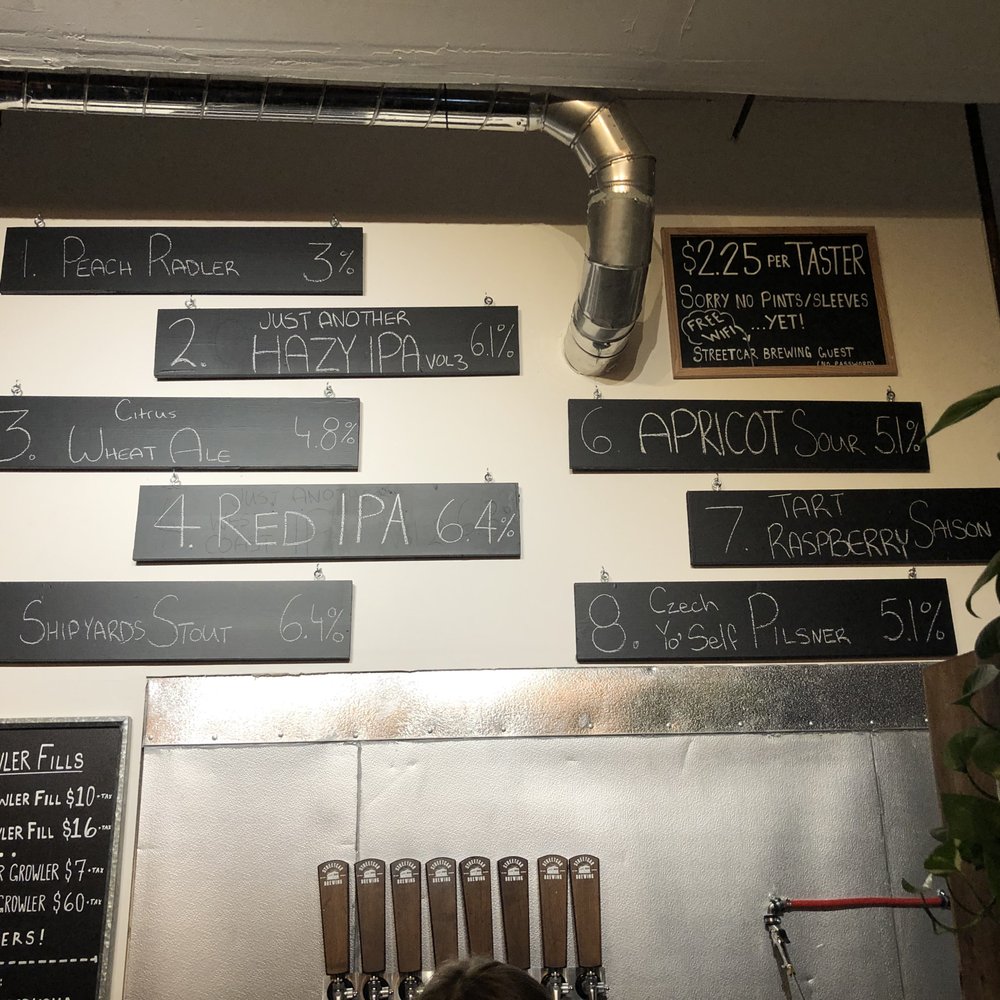 1. PEACH RADLER 3%
2. JUST ANOTHER
HAZY IPA VOL3 6.1%
3. Citrus
WHEAT ALE 4.8%
4. RED IPA 6.4%
SHIPYARDS STOUT 6.4%
$2.25 PER TASTER
SORRY NO PINTS/SLEEVES
...YET!
FREE
WIFI
STREETCAR BREWING GUEST
(NO PASSWORD)
6 APRICOT SOUR 5.1%
7. TART
RASPBERRY SAISON
8. Czech
Yo'Self PILSNER 5.1%
LER FILLS
WLER FILL $10+TAX
LER FILL $16+TAX
R GROWLER $7+TAX
GROWLER $60+TAX
ERS!
STREETCAR
BREWING
STREETCAR
BREWING
STREETCAR
BREWING
STREETCAR
BREWING
STREETCAR
BREWING
STREETCAR
BREWING
STREETCAR
BREWING
STREETCAR
BREWING